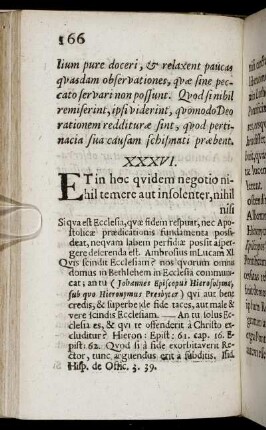 166
lium pure doceri, & relaxent paucas
qvasdam observationes, qvæ sine pec-
cato servari non possunt. Qvod si nihil
remiserint, ipsi viderint, qvomodo Deo
rationem reddituræ sint, qvod perti-
nacia sua causam schismati præbent.
XXXVI.
ET in hoc qvidem negotio ni-
hil temere aut insolenter, nihil
nisi
Si qva est Ecclesia, qvæ fidem respuat, nec Apo-
stolicæ prædicationis fundamenta possi-
deat, neqvam labem perfidiæ possit asper-
gere deserenda est. Ambrosius in Lucam X
Qvis scindit Ecclesiam? nos qvorum omnis
domus in Bethlehem in Ecclesia communi-
cat; an tu (Johannes Episcopus Hierosolymæ,
sub qvo Hieronymus Presbyter) qvi aut bene
credis, & superbe de fide taces, aut male &
vere scindis Ecclesiam. — An tu solus Ec-
clesia es, & qvi te offenderit à Christo ex-
cluditur? Hieron: Epist: 61. cap. 16. E-
pist: 62. Qvod si à fide exorbitaverit Re-
ctor, tunc arguendus erit à subditis. Isid.
Hisp. de Offic. 3. 39.